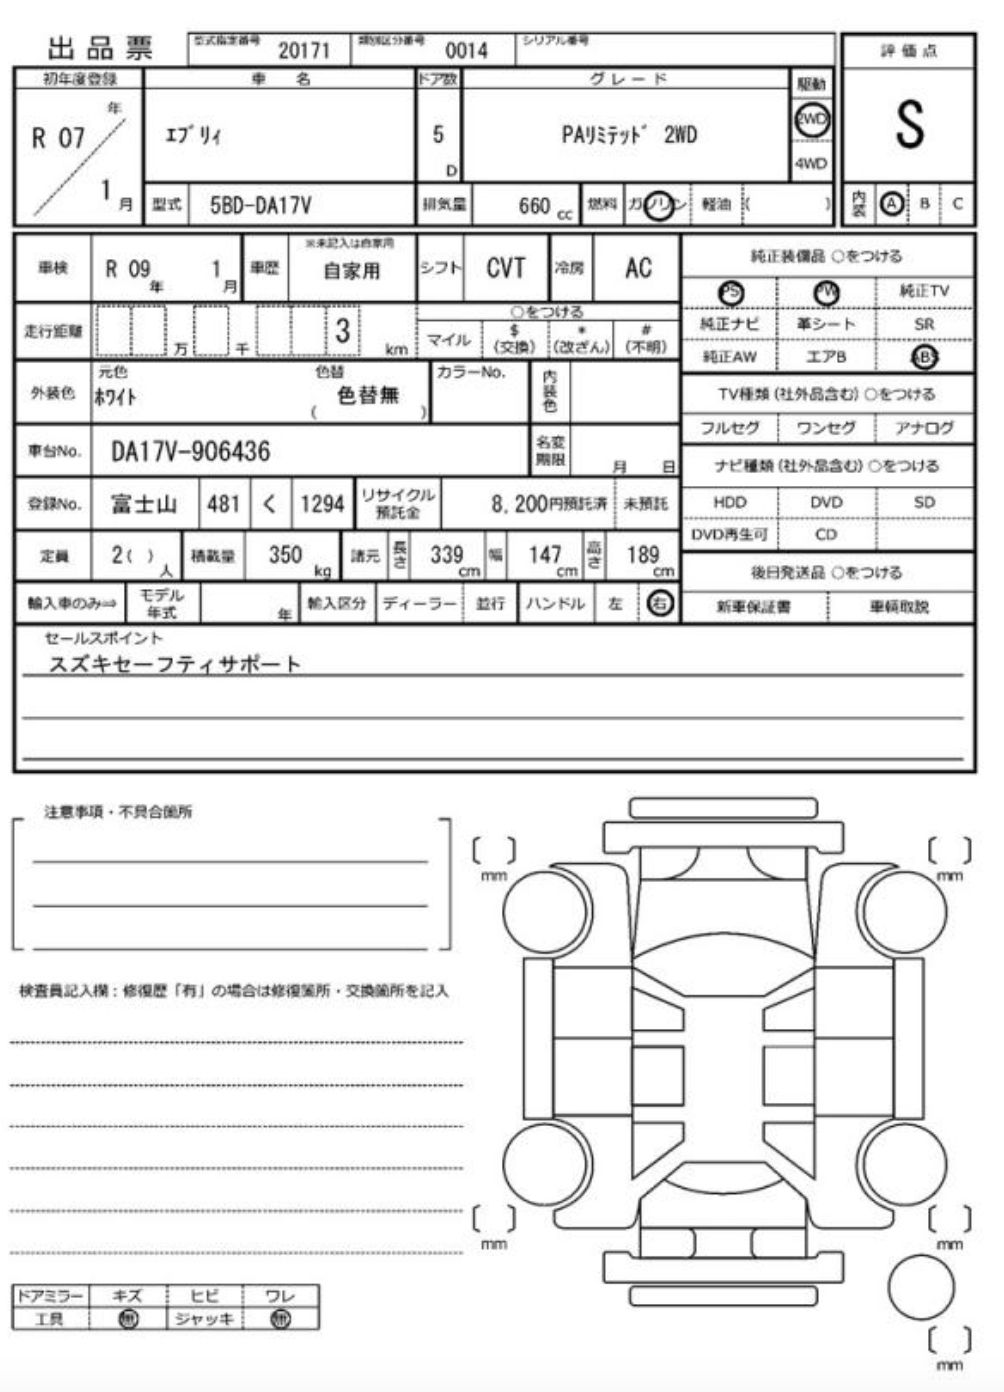 出品票 型式指定番号 20171 類別区分番号 0014 シリアル番号
評価点
初年度登録 車名 ドア数 グレード 駆動
R 07 年 1 月 エブリィ 5 D PAリミテッド 2WD 2WD 4WD S
型式 5BD-DA17V 排気量 660 cc 燃料 ガソリン 軽油 ( ) 内装 A B C
車検 R 09 年 1 月 車歴 ※未記入は自家用 自家用 シフト CVT 冷房 AC
純正装備品 ○をつける
PS PW 純正TV
純正ナビ 革シート SR
純正AW エアB ABS
走行距離 万 千 3 km ○をつける
マイル $(交換) *(改ざん) #(不明)
外装色 元色 ホワイト 色替 ( 色替無 ) カラーNo. 内装色
TV種類(社外品含む)○をつける
フルセグ ワンセグ アナログ
車台No. DA17V-906436 名変期限 月 日
ナビ種類(社外品含む)○をつける
HDD DVD SD
DVD再生可 CD
登録No. 富士山 481 く 1294 リサイクル預託金 8,200円預託済 未預託
定員 2( )人 積載量 350 kg 諸元 長さ 339 cm 幅 147 cm 高さ 189 cm
後日発送品 ○をつける
新車保証書 車輌取説
輸入車のみ⇒ モデル年式 年 輸入区分 ディーラー 並行 ハンドル 左 右
セールスポイント
スズキセーフティサポート
注意事項・不具合箇所
検査員記入欄:修復歴「有」の場合は修復箇所・交換箇所を記入
[ ] mm
[ ] mm
[ ] mm
[ ] mm
[ ] mm
ドアミラー キズ ヒビ ワレ
工具 無 ジャッキ 無